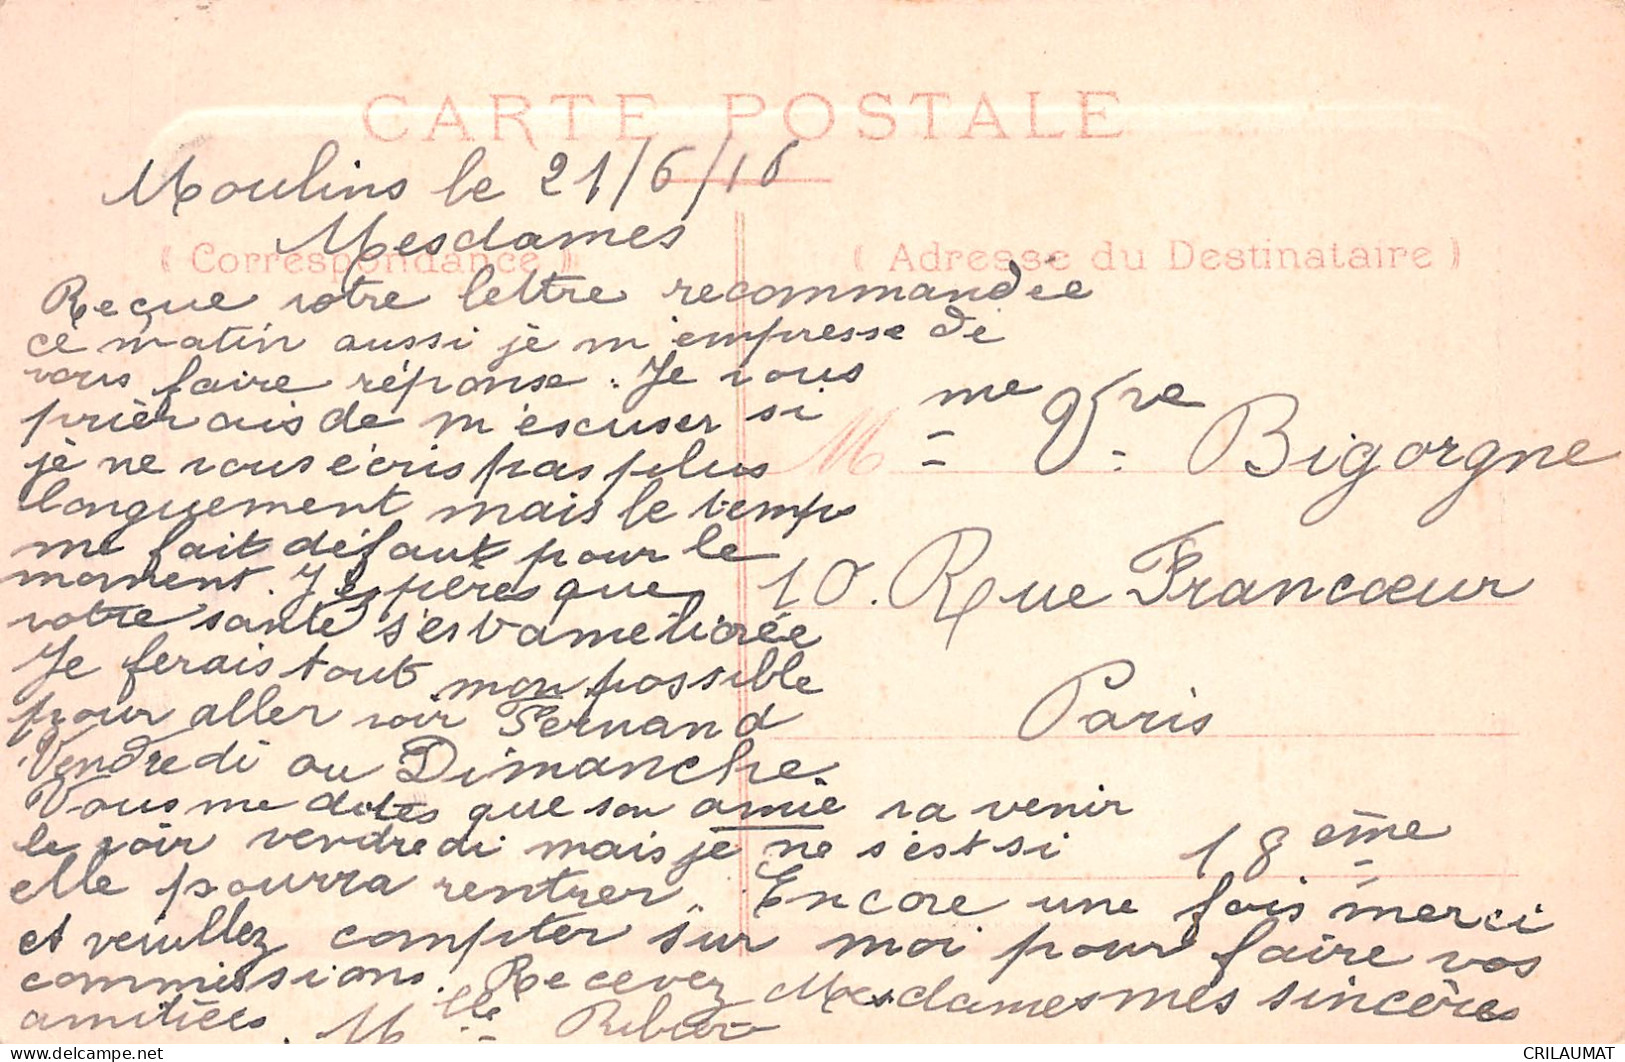 CARTE POSTALE
Moulins le 21/6/16
Mesdames
( Correspondance )
( Adresse du Destinataire )
Reçue votre lettre recommandée
ce matin aussi je m'empresse de
vous faire réponse. Je vous
prièrais de m'escuser si
je ne vous écris pas plus
longuement mais le temps
me fait défaut pour le
moment. J'espères que
votre santé s'est améliorée
Je ferais tout mon possible
pour aller voir Fernand
Vendredi ou Dimanche.
Vous me dites que son amie va venir
le voir vendredi mais je ne s'est si
elle pourra rentrer. Encore une fois merci
et veuillez compter sur moi pour faire vos
commissions. Recevez Mesdames mes sincères
amitiées. Mlle
Mme Vve Bigorgne
10. Rue Francœur
Paris
18ème
CRILAUMAT